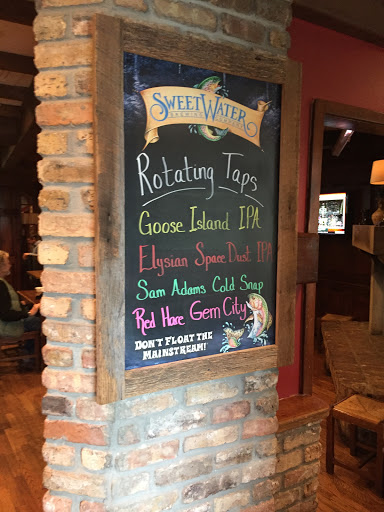 SWEETWATER
BREWING COMPANY
Rotating Taps
Goose Island IPA
Elysian Space Dust IPA
Sam Adams Cold Snap
Red Hare Gem City
DON'T FLOAT THE
MAINSTREAM!